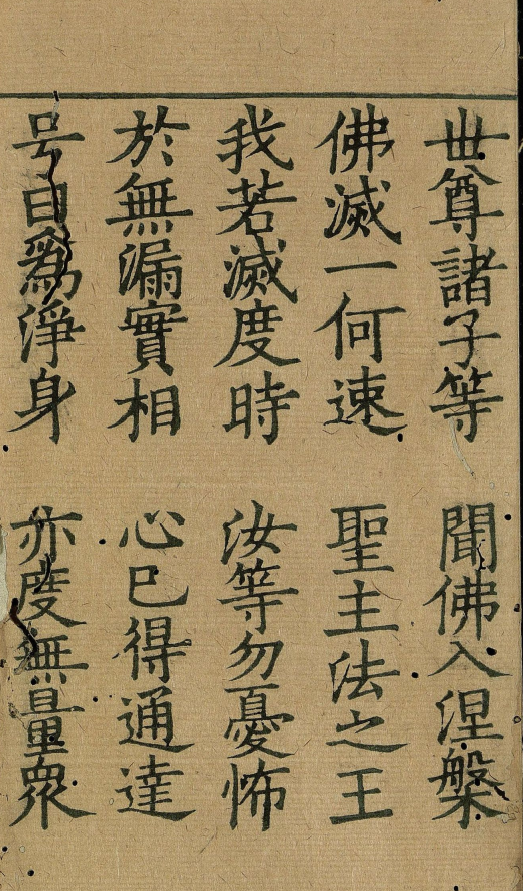 世尊諸子等　聞佛入涅槃
佛滅一何速　聖主法之王
我若滅度時　汝等勿憂怖
於無漏實相　心已得通達
号曰爲淨身　亦度無量衆